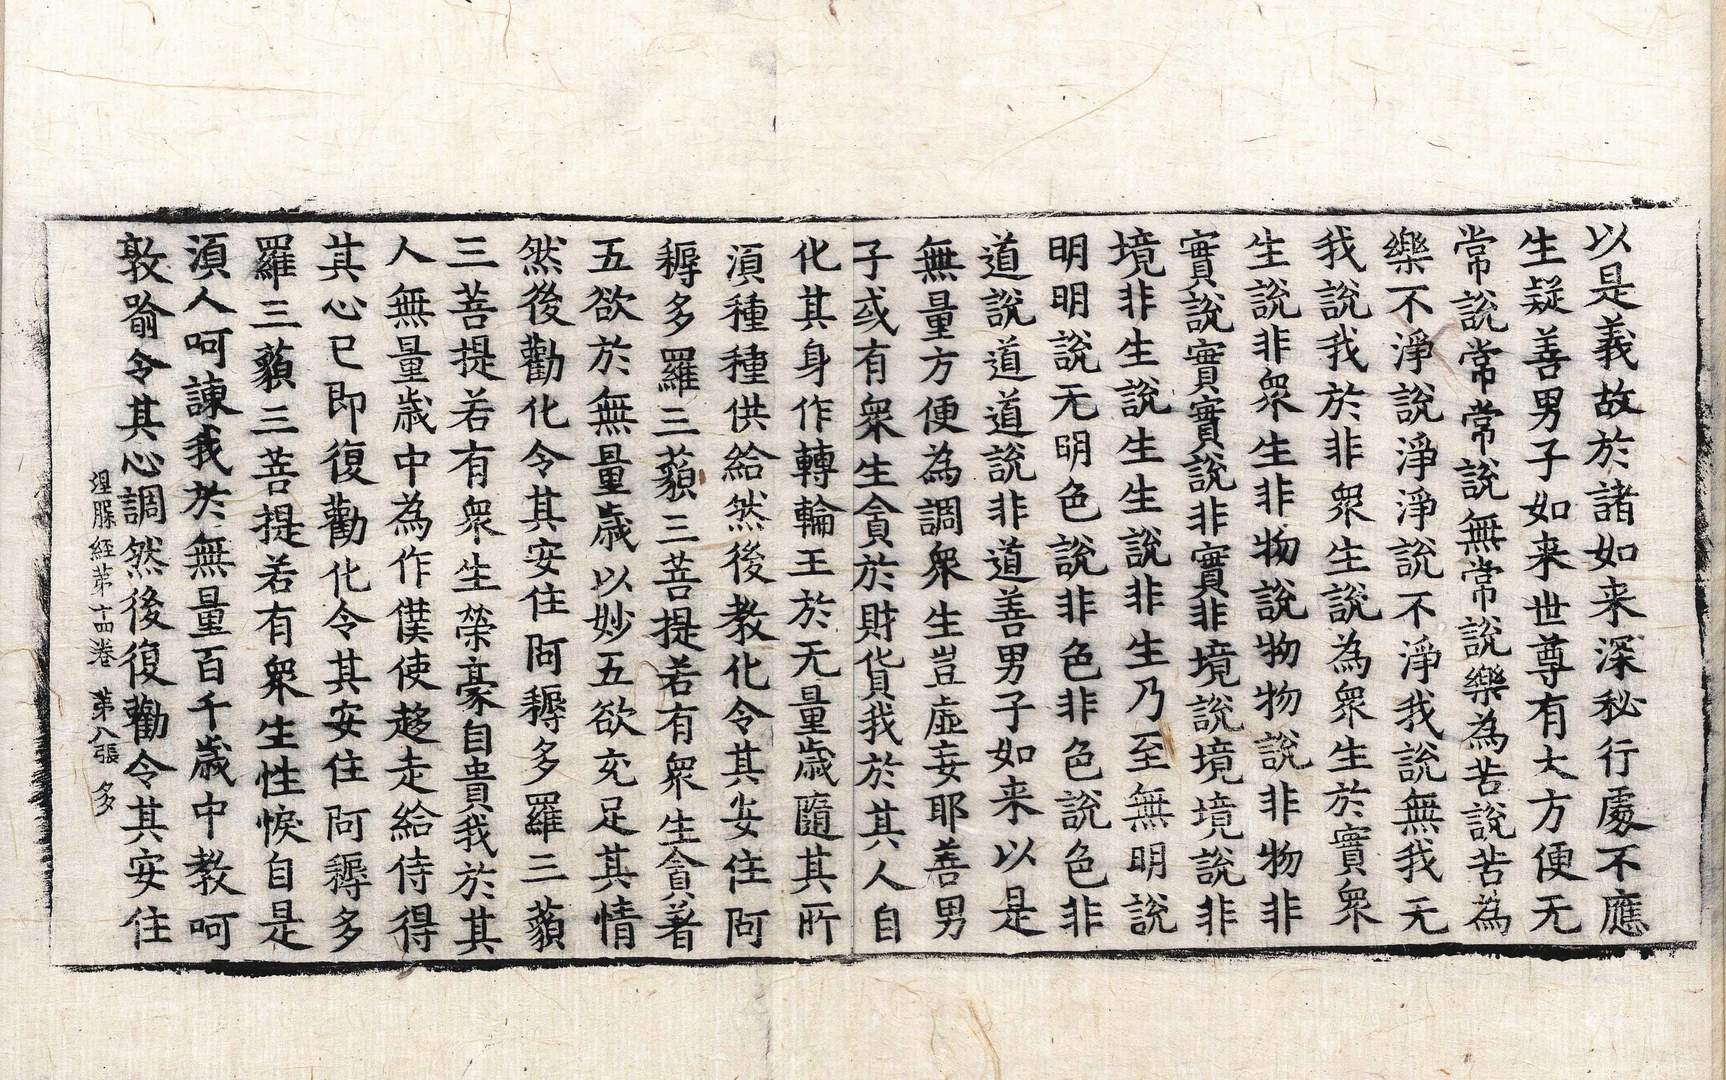 以是義故於諸如来深秘行處不應
生疑善男子如来世尊有大方便无
常說常常說無常說樂為苦說苦為
樂不淨說淨淨說不淨我說無我无
我說我於非衆生說為衆生於實衆
生說非衆生非物說物物說非物非
實說實實說非實非境說境境說非
境非生說生生說非生乃至無明說
明明說无明色說非色非色說色非
道說道道說非道善男子如来以是
無量方便為調衆生豈虛妄耶善男
子或有衆生貪於財貨我於其人自
化其身作轉輪王於无量歲隨其所
湏種種供給然後教化令其安住阿
耨多羅三藐三菩提若有衆生貪著
五欲於無量歲以妙五欲充足其情
然後勸化令其安住阿耨多羅三藐
三菩提若有衆生榮豪自貴我於其
人無量歲中為作僕使趍走給侍得
其心已即復勸化令其安住阿耨多
羅三藐三菩提若有衆生性悷自是
湏人呵諫我於無量百千歲中教呵
敦喻令其心調然後復勸令其安住
涅槃経苐十四卷 苐八張 多